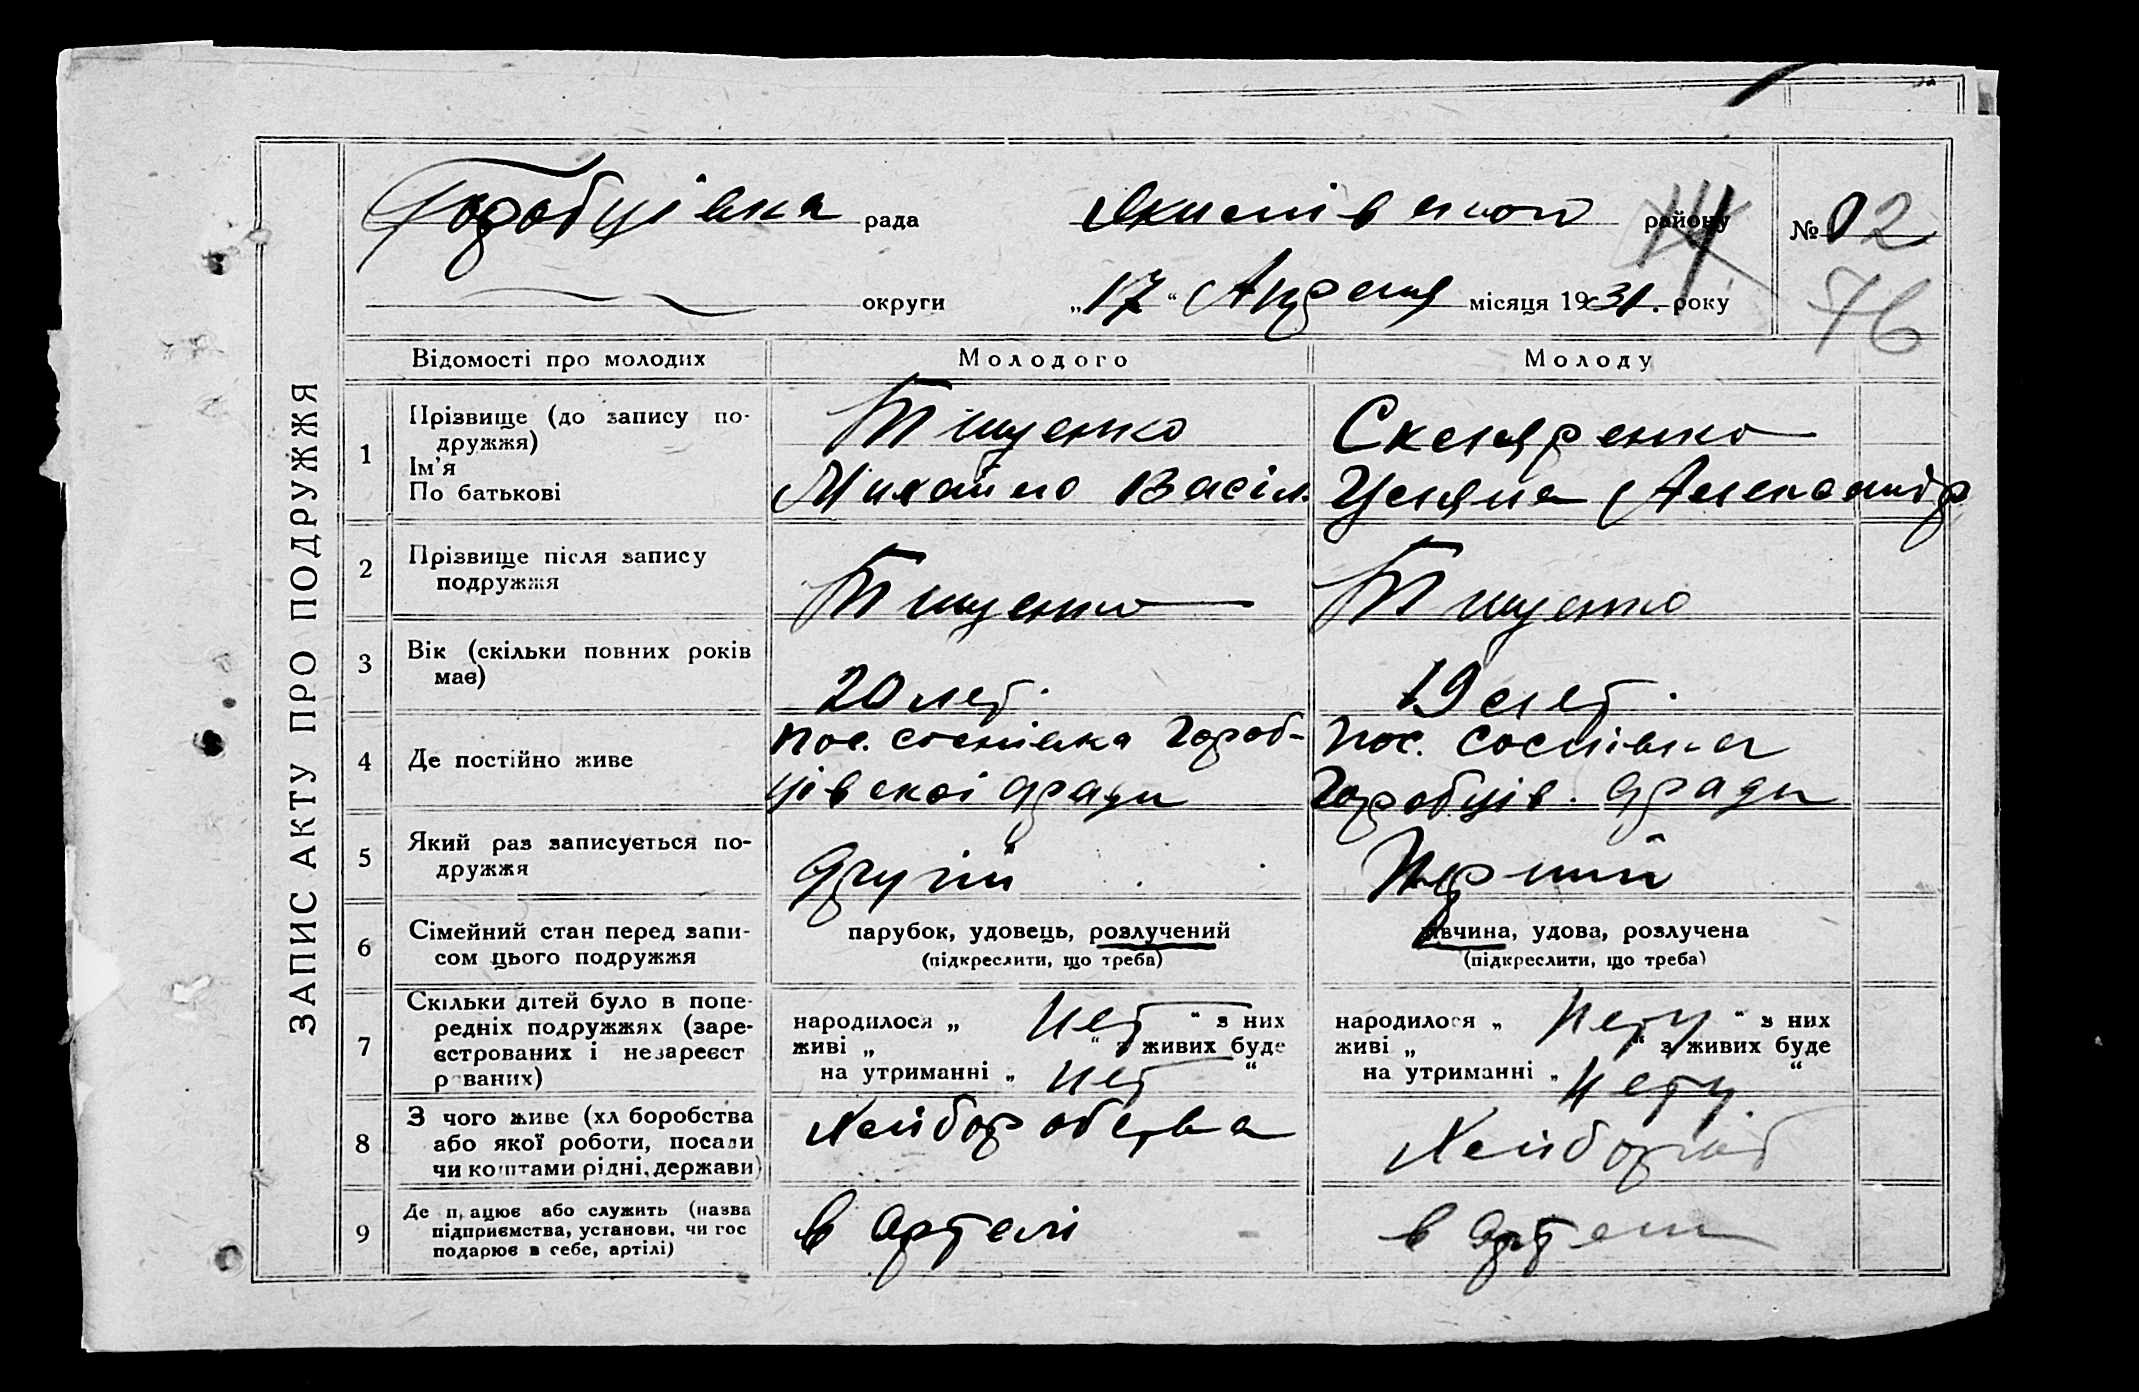 ЗАПИС АКТУ ПРО ПОДРУЖЖЯ
Горобцівка рада
району
№ 02
76
округи
„17“ Апреля місяця 1931. року
Відомості про молодих
Молодого
Молоду
1
Прізвище (до запису по-
дружжя)
Ім'я
По батькові
Тищенко
Михайло Васіл.
Скляренко
Уляна Александр
2
Прізвище після запису
подружжя
Тищенко
Тищенко
3
Вік (скільки повних років
має)
20 лет.
19 лет.
4
Де постійно живе
пос. соснівка Гороб-
цівскоі сради
пос. соснівка
Горобців. сради
5
Який раз записується по-
дружжя
другій
Перший
6
Сімейний стан перед запи-
сом цього подружжя
парубок, удовець, розлучений
(підкреслити, що треба)
дівчина, удова, розлучена
(підкреслити, що треба)
7
Скільки дітей було в попе-
редніх подружжях (заре-
єстрованих і незареєст
рованих)
народилося „ Нет “ з них
живі „ “ з живих буде
на утриманні „ нет “
народилося „ Нету “ з них
живі „ “ з живих буде
на утриманні „ нету “
8
З чого живе (хліборобства
або якої роботи, посади
чи коштами рідні, держави)
Хлиборобства
Хлибороб
9
Де працює або служить (назва
підприємства, установи, чи гос
подарює в себе, артілі)
в артелі
в артели